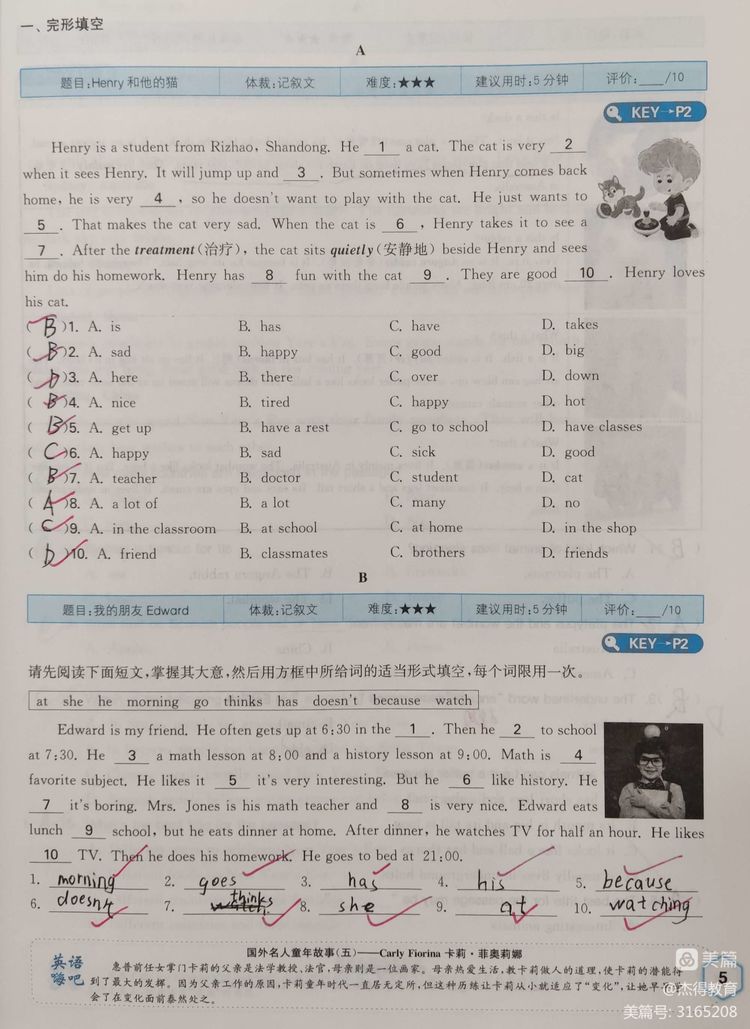 一、完形填空
A
题目:Henry 和他的猫 体裁:记叙文 难度:★★★ 建议用时:5 分钟 评价:____/10
KEY→P2
Henry is a student from Rizhao, Shandong. He 1 a cat. The cat is very 2
when it sees Henry. It will jump up and 3 . But sometimes when Henry comes back
home, he is very 4 , so he doesn't want to play with the cat. He just wants to
5 . That makes the cat very sad. When the cat is 6 , Henry takes it to see a
7 . After the treatment(治疗), the cat sits quietly(安静地) beside Henry and sees
him do his homework. Henry has 8 fun with the cat 9 . They are good 10 . Henry loves
his cat.
( B )1. A. is B. has C. have D. takes
( B )2. A. sad B. happy C. good D. big
( D )3. A. here B. there C. over D. down
( B )4. A. nice B. tired C. happy D. hot
( B )5. A. get up B. have a rest C. go to school D. have classes
( C )6. A. happy B. sad C. sick D. good
( B )7. A. teacher B. doctor C. student D. cat
( A )8. A. a lot of B. a lot C. many D. no
( C )9. A. in the classroom B. at school C. at home D. in the shop
( D )10. A. friend B. classmates C. brothers D. friends
B
题目:我的朋友 Edward 体裁:记叙文 难度:★★★ 建议用时:5 分钟 评价:____/10
KEY→P2
请先阅读下面短文,掌握其大意,然后用方框中所给词的适当形式填空,每个词限用一次。
at she he morning go thinks has doesn't because watch
Edward is my friend. He often gets up at 6:30 in the 1 . Then he 2 to school
at 7:30. He 3 a math lesson at 8:00 and a history lesson at 9:00. Math is 4
favorite subject. He likes it 5 it's very interesting. But he 6 like history. He
7 it's boring. Mrs. Jones is his math teacher and 8 is very nice. Edward eats
lunch 9 school, but he eats dinner at home. After dinner, he watches TV for half an hour. He likes
10 TV. Then he does his homework. He goes to bed at 21:00.
1. morning 2. goes 3. has 4. his 5. because
6. doesn't 7. thinks 8. she 9. at 10. watching
英语嗨吧
国外名人童年故事(五)——Carly Fiorina 卡莉·菲奥莉娜
惠普前任女掌门卡莉的父亲是法学教授、法官,母亲则是一位画家。母亲热爱生活,教卡莉做人的道理,使卡莉的潜能得
到了最大的发挥。因为父亲工作的原因,卡莉童年时代一直居无定所,但这种历练让卡莉从小就适应了“变化”,让她早早学
会了在变化面前泰然处之。
5
美篇
@杰得教育
美篇号: 3165208